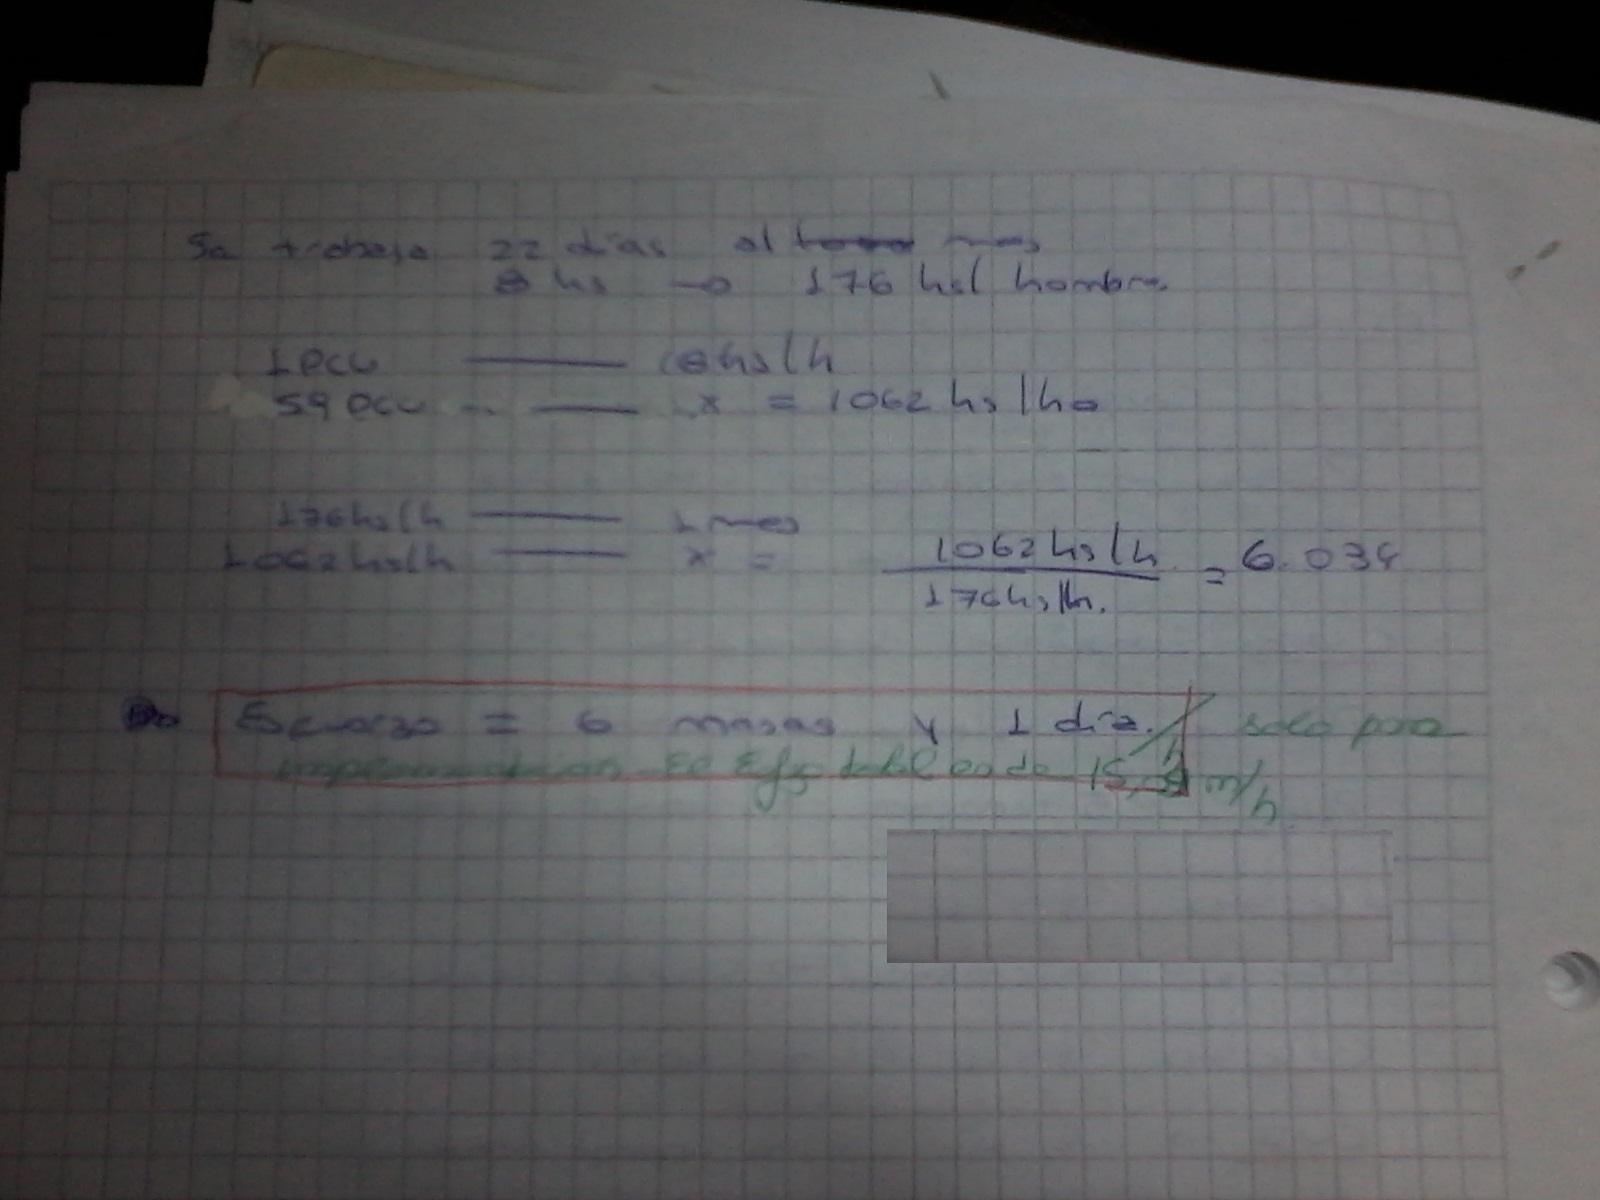 Se trabaja 22 dias al mes
8 hs → 176 hs/ hombre
1 PCU —— 18 hs/h
59 PCU —— x = 1062 hs/ho
176 hs/h —— 1 mes
1062 hs/h —— x = 1062 hs/h / 176 hs/h. = 6.034
Esfuerzo = 6 meses y 1 dia. solo para
implementacion El Efz total es de 15, m/h